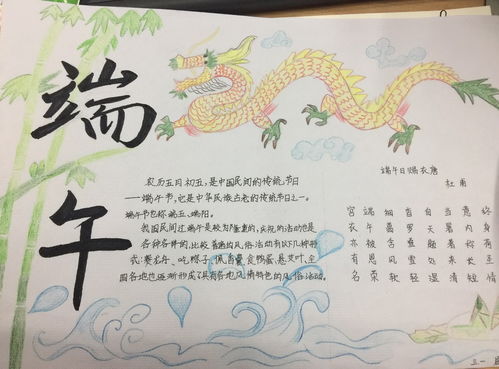 端午
农历五月初五,是中国民间的传统节日
——端午节,它是中华民族古老的传统节日之一。
端午节也称端五、端阳。
我国民间过端午是较为隆重的,庆祝的活动也是
各种各样的,比较普遍的风俗活动有以下几种形
式:赛龙舟、吃粽子、佩香囊、食鸭蛋、悬艾叶,全
国各地也逐渐形成了具有各地风情特色的风俗活动。
端午日赐衣唐
杜甫
宫衣亦有名
端午被恩荣
细葛含风软
香罗叠雪轻
自天题处湿
当暑著来清
意内称长短
终身荷圣情
三一